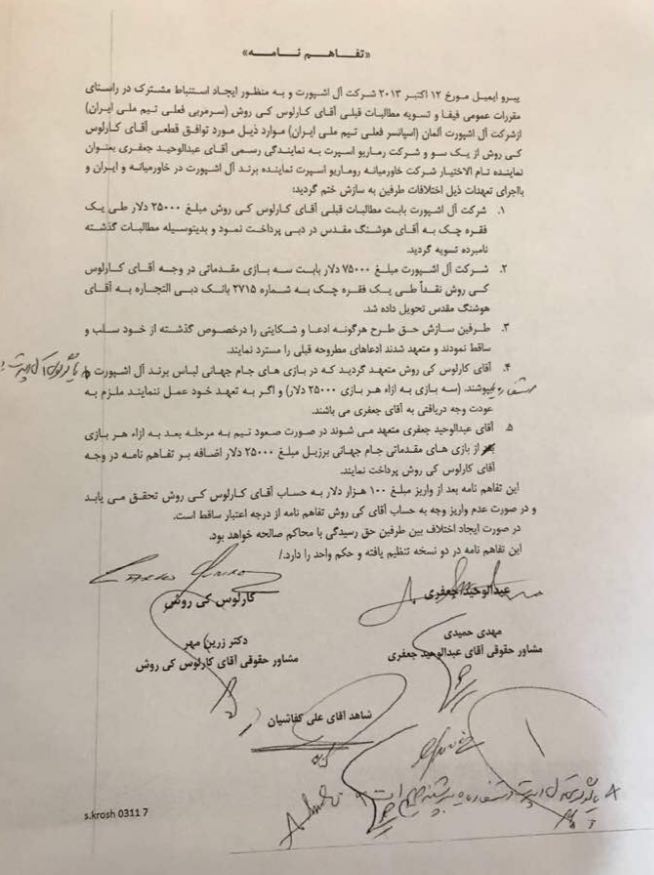 «تفاهم نامه»
پیرو ایمیل مورخ ۱۲ اکتبر ۲۰۱۳ شرکت آل اشپورت و به منظور ایجاد استنباط مشترک در راستای
مقررات عمومی فیفا و تسویه مطالبات قبلی آقای کارلوس کی روش (سرمربی فعلی تیم ملی ایران)
ازشرکت آل اشپورت آلمان (اسپانسر فعلی تیم ملی ایران) موارد ذیل مورد توافق قطعی آقای کارلوس
کی روش از یک سو و شرکت رماریو اسپرت به نمایندگی رسمی آقای عبدالوحید جعفری بعنوان
نماینده تام الاختیار شرکت خاورمیانه روماریو اسپرت نماینده برند آل اشپورت در خاورمیانه و ایران و
بااجرای تعهدات ذیل اختلافات طرفین به سازش ختم گردید:
۱. شرکت آل اشپورت بابت مطالبات قبلی آقای کارلوس کی روش مبلغ ۲۵۰۰۰ دلار طی یک
فقره چک به آقای هوشنگ مقدس در دبی پرداخت نمود و بدینوسیله مطالبات گذشته
نامبرده تسویه گردید.
۲. شرکت آل اشپورت مبلغ ۷۵۰۰۰ دلار بابت سه بازی مقدماتی در وجه آقای کارلوس
کی روش نقداً طی یک فقره چک به شماره ۲۷۱۵ بانک دبی التجاره به آقای
هوشنگ مقدس تحویل داده شد.
۳. طرفین سازش حق طرح هرگونه ادعا و شکایتی را درخصوص گذشته از خود سلب و
ساقط نمودند و متعهد شدند ادعاهای مطروحه قبلی را مسترد نمایند.
۴. آقای کارلوس کی روش متعهد گردید که در بازی های جام جهانی لباس برند آل اشپورت
بپوشند. (سه بازی به ازاء هر بازی ۲۵۰۰۰ دلار) و اگر به تعهد خود عمل ننمایند ملزم به
عودت وجه دریافتی به آقای جعفری می باشند.
۵. آقای عبدالوحید جعفری متعهد می شوند در صورت صعود تیم به مرحله بعد به ازاء هر بازی
از بازی های مقدماتی جام جهانی برزیل مبلغ ۲۵۰۰۰ دلار اضافه بر تفاهم نامه در وجه
آقای کارلوس کی روش پرداخت نمایند.
این تفاهم نامه بعد از واریز مبلغ ۱۰۰ هزار دلار به حساب آقای کارلوس کی روش تحقق می یابد
و در صورت عدم واریز وجه به حساب آقای کی روش تفاهم نامه از درجه اعتبار ساقط است.
در صورت ایجاد اختلاف بین طرفین حق رسیدگی با محاکم صالحه خواهد بود.
این تفاهم نامه در دو نسخه تنظیم یافته و حکم واحد را دارد./
عبدالوحید جعفری
کارلوس کی روش
مهدی حمیدی
دکتر زرین مهر
مشاور حقوقی آقای عبدالوحید جعفری
مشاور حقوقی آقای کارلوس کی روش
شاهد آقای علی کفاشیان
s.krosh 0311 7